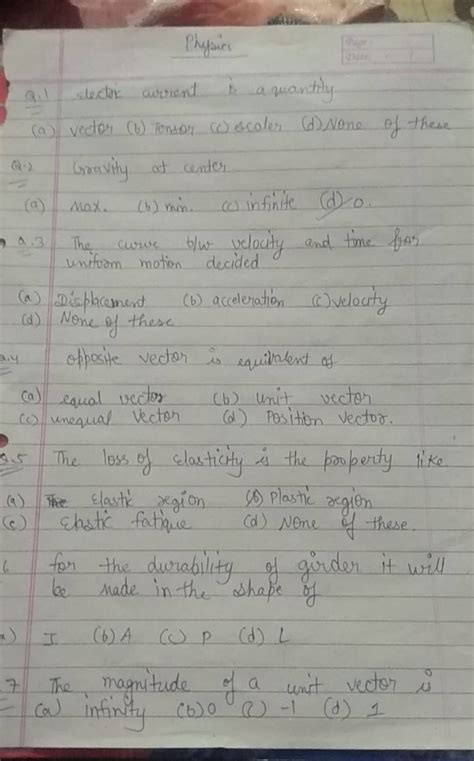 Physics
Page:
Date:
Q.1 electric current is a quantity
(a) vector (b) Tensor (c) escaler (d) None of these
Q.2 Gravity at center
(a) max. (b) min. (c) infinite (d) 0.
Q.3 The curve b/w velocity and time for
uniform motion decided
(a) Displacement (b) acceleration (c) velocity
(d) None of these
Q.4 opposite vector is equivalent of
(a) equal vector (b) unit vector
(c) unequal vector (d) Position vector.
Q.5 The loss of elasticity is the property like
(a) Elastic region (b) Plastic region
(c) Elastic fatique (d) None of these.
6 for the durability of girder it will
be made in the shape of
a) I (b) A (c) P (d) L
7 The magnitude of a unit vector is
(a) infinity (b) 0 (c) -1 (d) 1